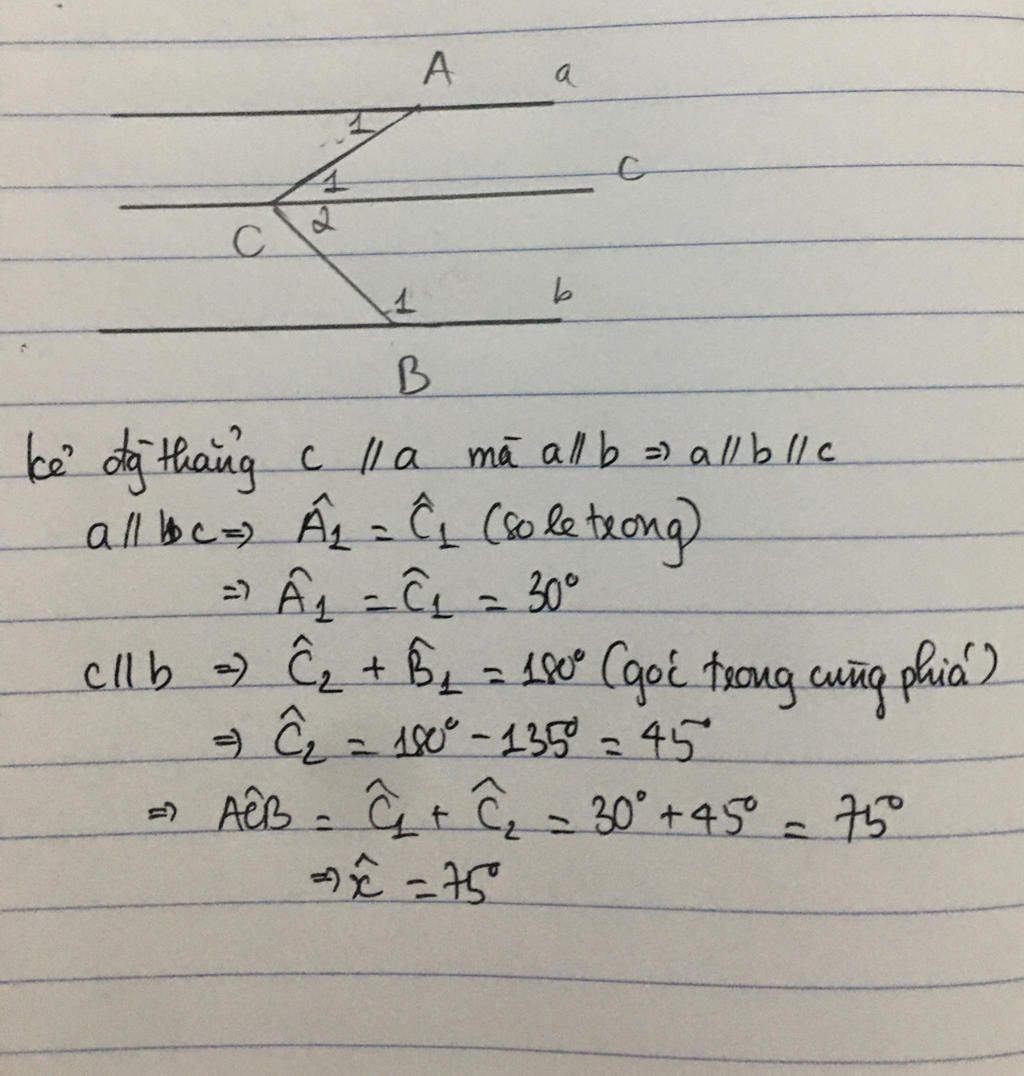 A a
1
1 C
C 2
1 b
B
kẻ đg thẳng c // a mà a // b => a // b // c
a // c => Â1 = Ĉ1 (so le trong)
=> Â1 = Ĉ1 = 30°
c // b => Ĉ2 + B̂1 = 180° (góc trong cùng phía)
=> Ĉ2 = 180° - 135° = 45°
=> AĈB = Ĉ1 + Ĉ2 = 30° + 45° = 75°
=> x̂ = 75°